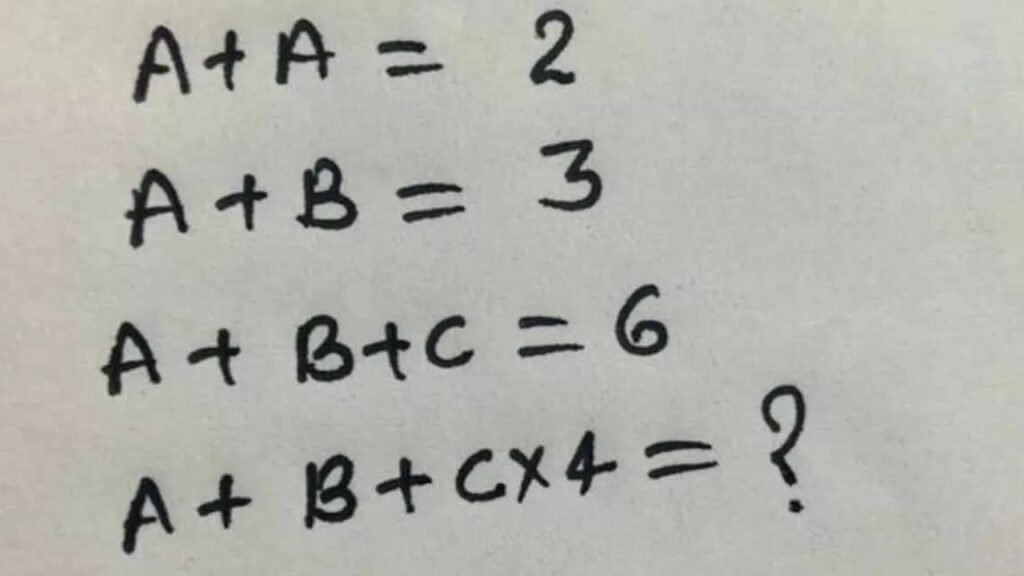 A+A = 2
A+B = 3
A + B+C = 6
A + B+C×4 = ?